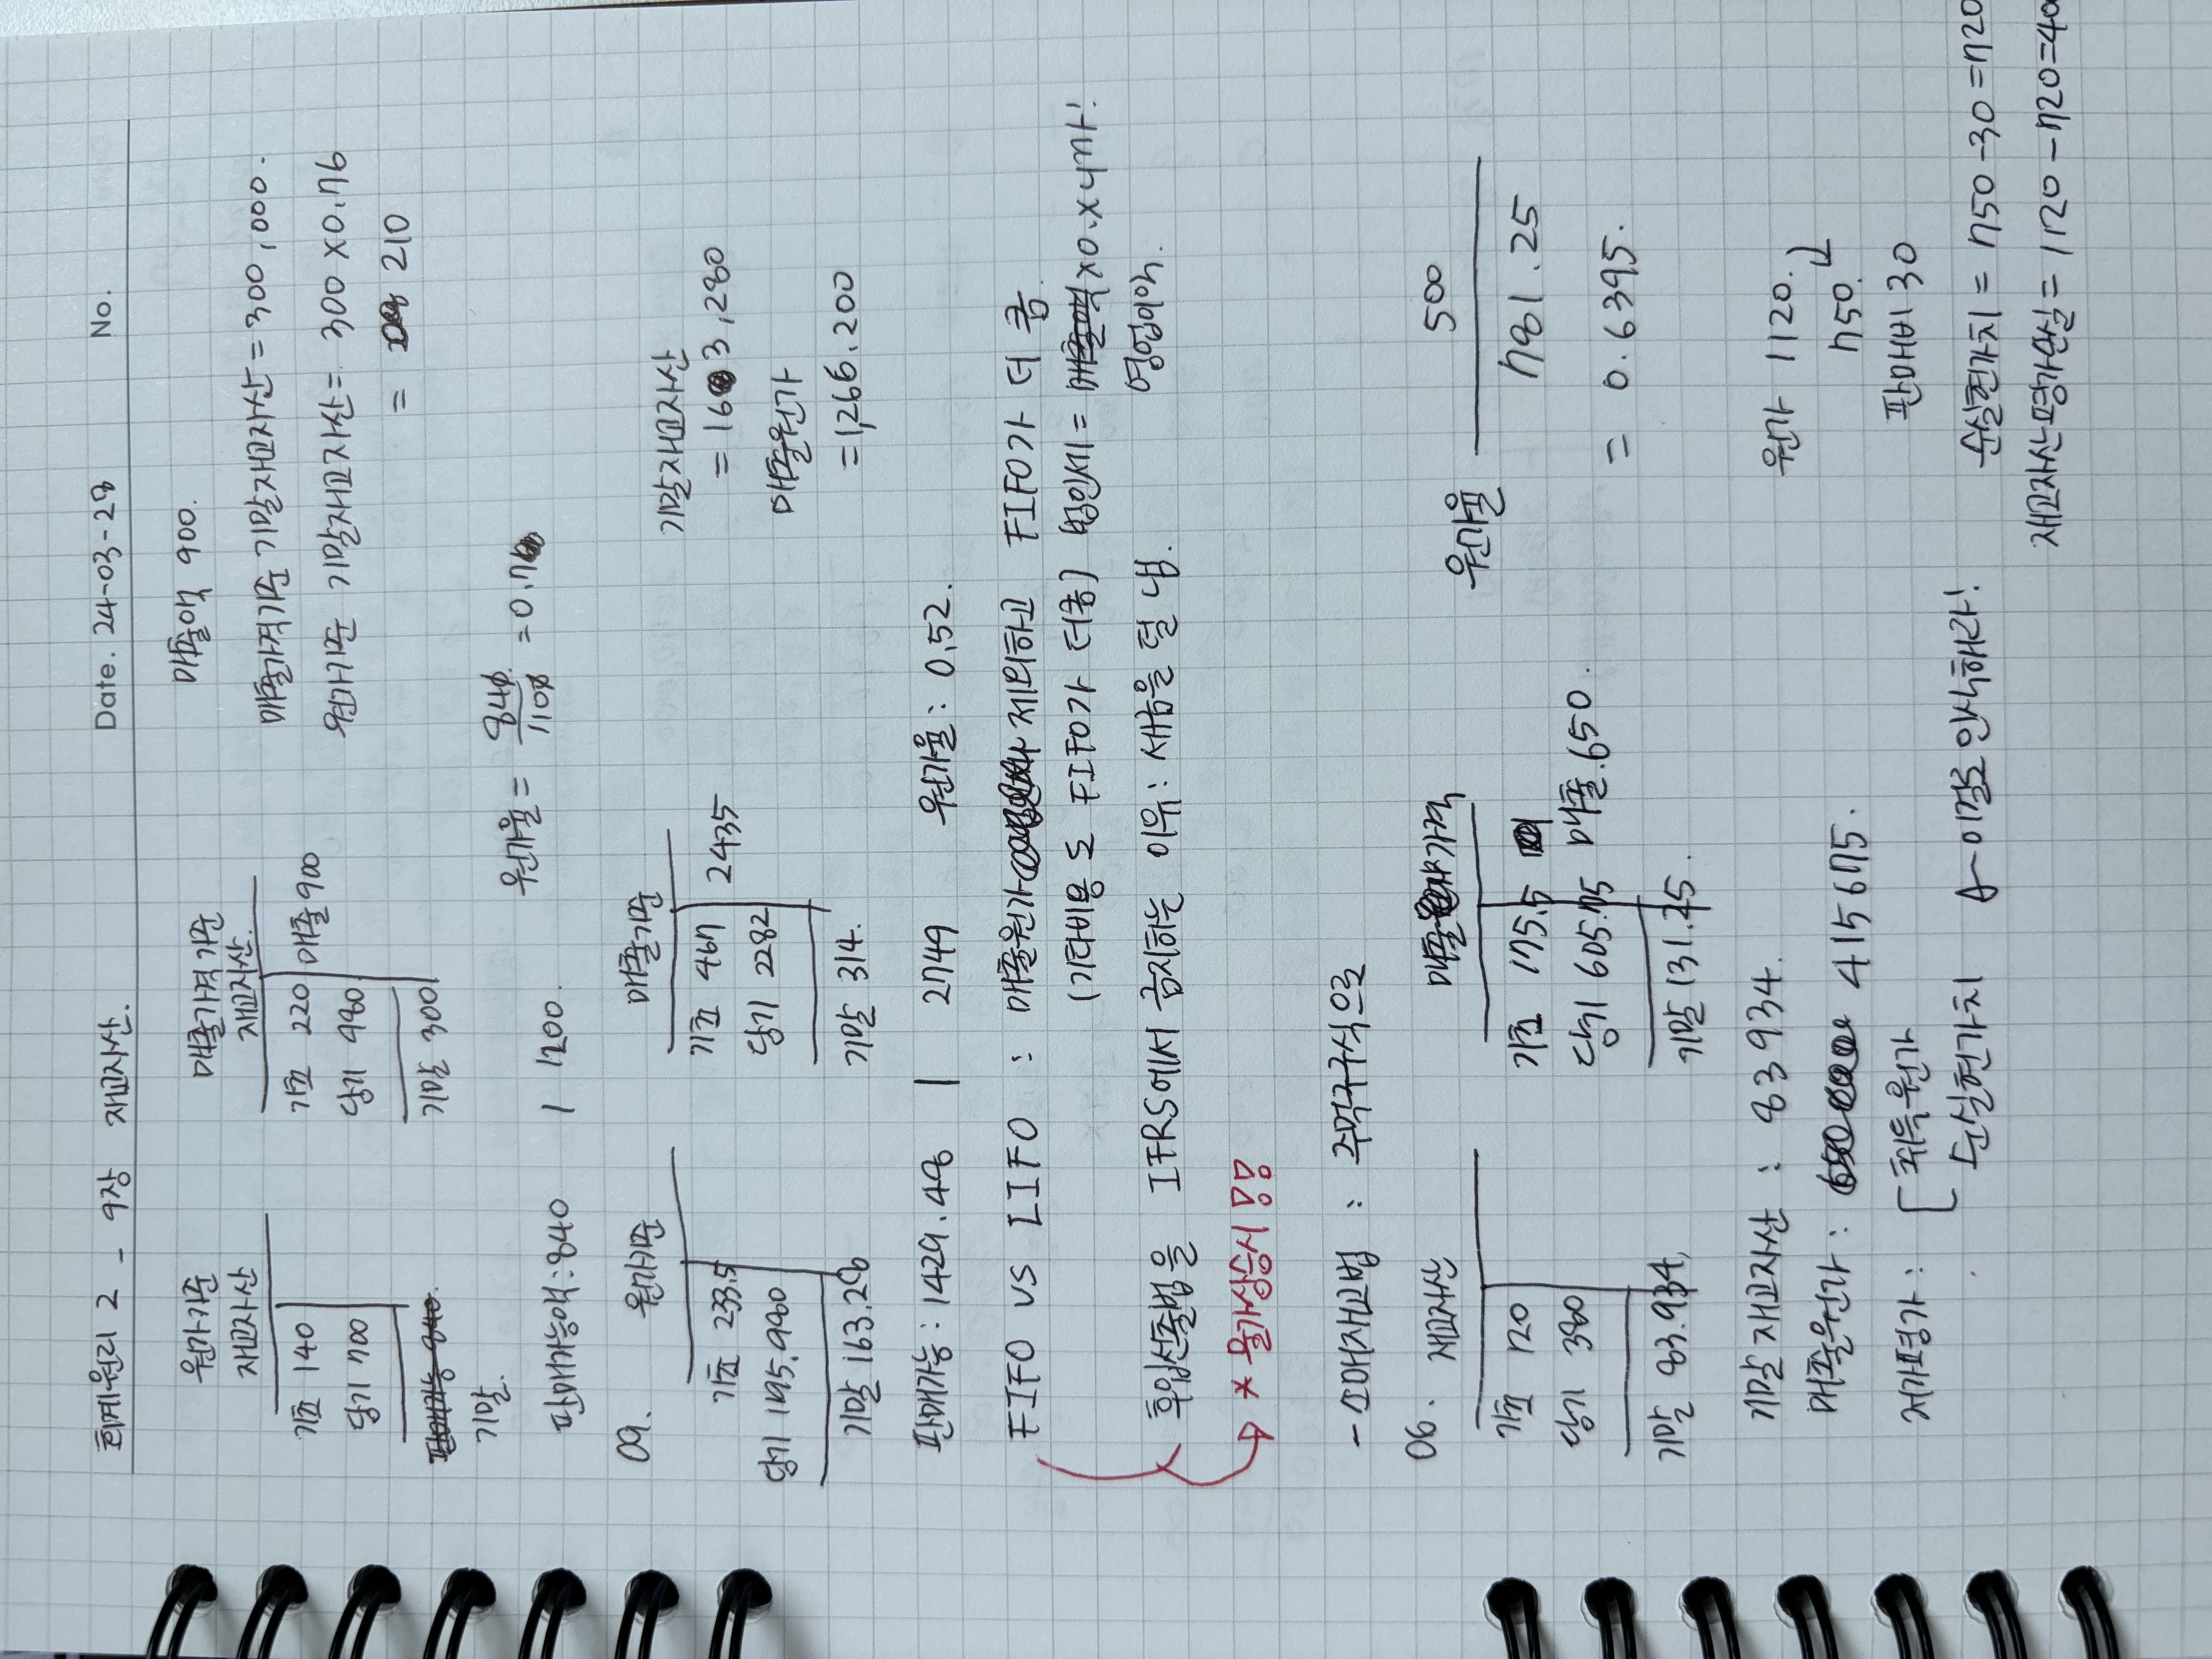 회계원리 2 - 9장 재고자산. Date. 24-03-28 No.
원가기준 재고자산
기초 140
당기 700
판매가능 840.
기말.
매출가격기준 재고자산.
기초 220 매출 900
당기 980
기말 300
매출액 900.
매출가격기준 기말재고자산 = 300,000.
원가기준 기말재고자산 = 300 × 0.76
= 210
원가율 = 840/1100 = 0.7
판매가능액: 840 | 1200.
09. 원가기준
기초 233.5
당기 1195.980
기말 163.28
매출기준
기초 467 2435
당기 2282
기말 314.
기말재고자산
= 163,280
매출원가
= 1,266.200
판매가능 : 1429.48 | 2749 원가율 : 0.52.
FIFO VS LIFO : 매출원가 제외하고 FIFO가 더 큼.
(기타비용도 FIFO가 더큼) 법인세 = 매출액 ×0.×니까!
영업이익.
후입선출법을 IFRS에서 금지하는 이유: 세금을 덜 냄.
* 물가상승시!!
- 소매재고법 : 주먹구구식으로
06. 재고자산
기초 120
당기 380
기말 83.934,
매출 가격
기초 175.5
당기 605.75 매출.650.
기말 131.25.
원가율 500
781.25
= 0.6395.
기말 재고자산 : 83934.
매출원가 : 415675.
저가평가 : 취득원가
순실현가치 ←이걸로 인식해라!
원가 1120.
750.
판매비 30
순실현가치 = 750 - 30 = 720
재고자산평가손실 = 1120 - 720 = 40